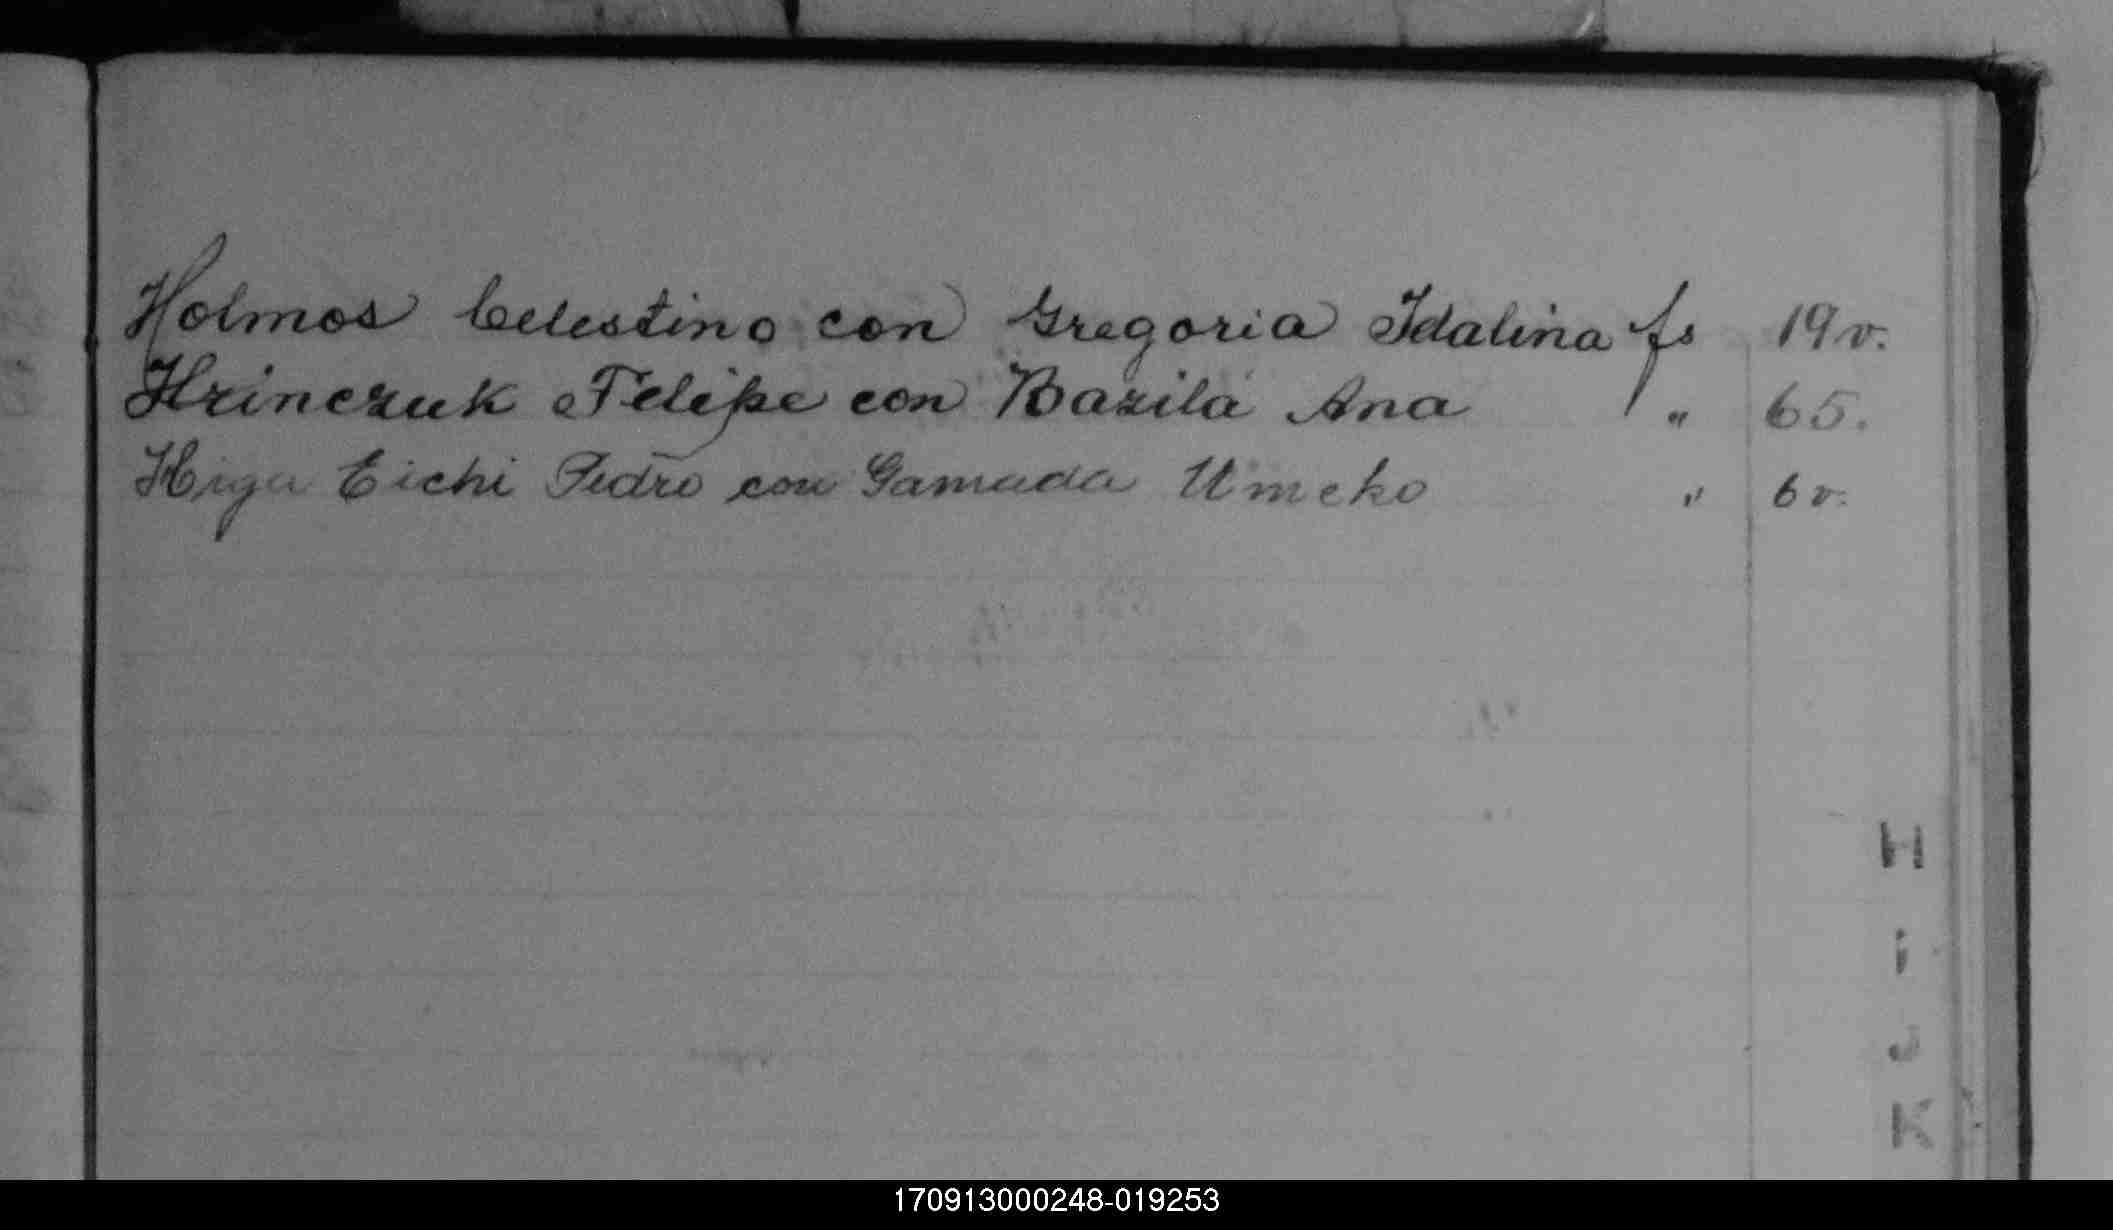 Holmos Celestino con Gregoria Idalina fs 19v.
Hrinczuk Felipe con Bazila Ana " 65.
Higa Eichi Pedro con Gamada Umeko " 6v.
H
i
J
K
170913000248-019253